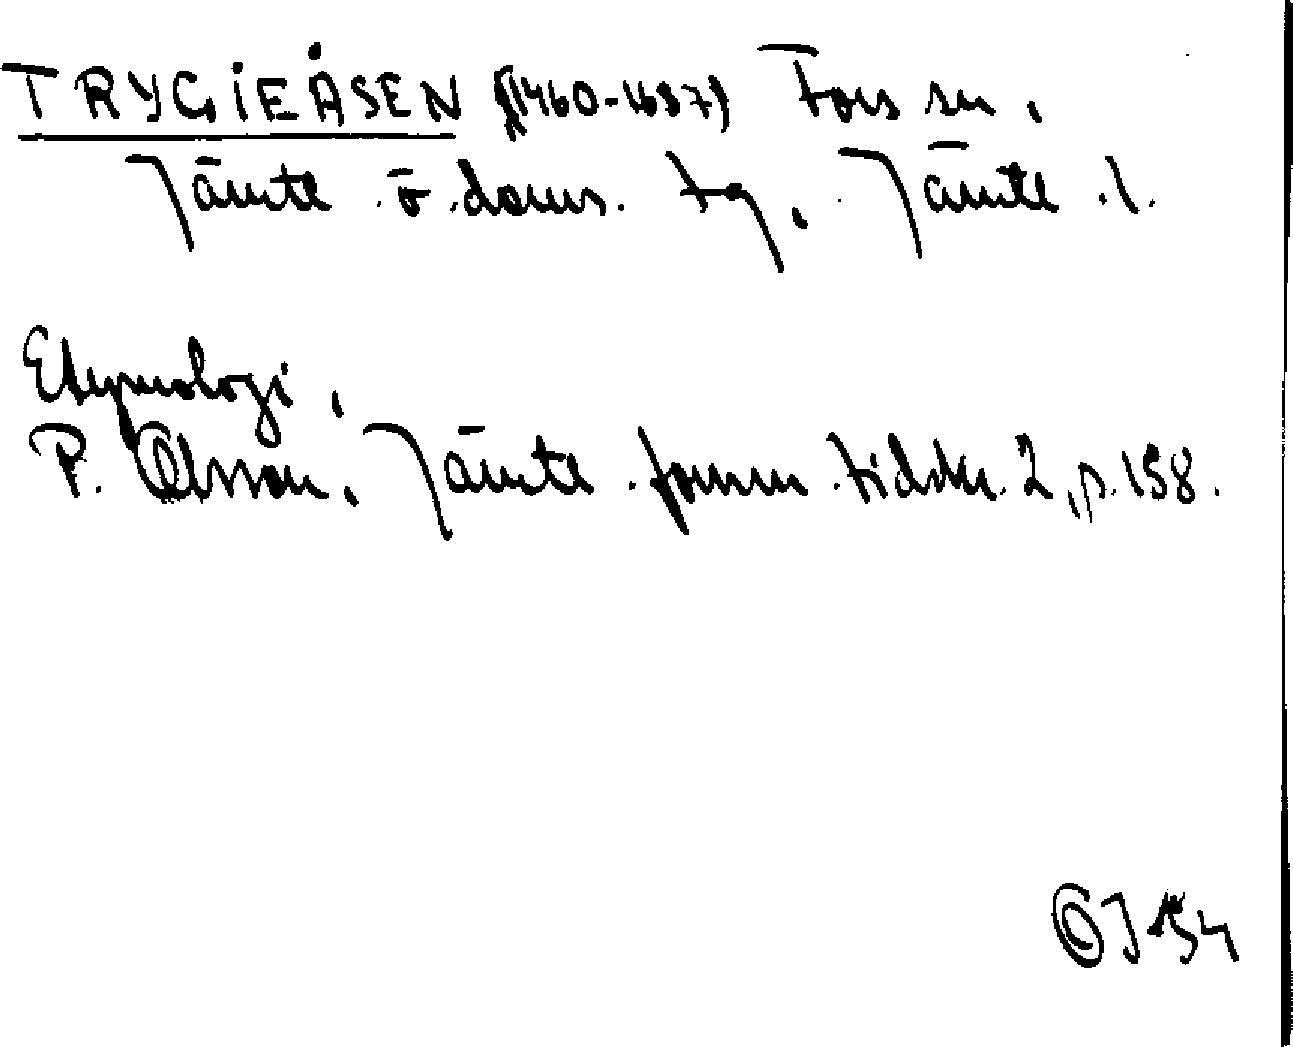 TRYGIEÅSEN (1460-1687) Fors sn,
Jämtl. ö. doms. tg, Jämtl. l.
Etymologi,
P. Olsson, Jämtl. fornm. tidskr. 2, p. 158.
OJ 54